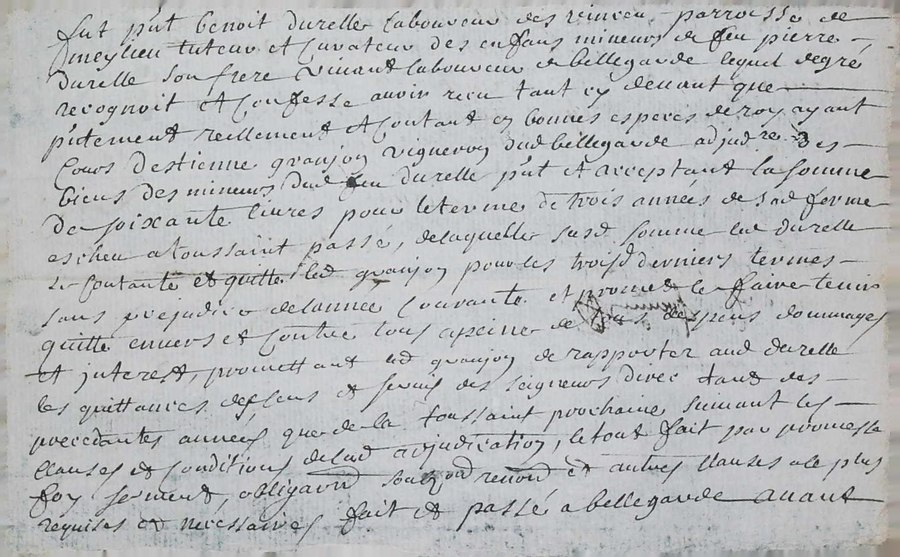 fut p'nt benoit durelle laboureur des vinven parroisse de
smeylieu tuteur et curateur des enfans mineurs de feu pierre
durelle son frere vivant laboureur de bellegarde lequel degré
recognoit et confesse avoir receu tant cy devant que
p'ntement reellement et contant en bonnes especes de roy ayant
cours destienne granjon vigneron dud bellegarde adjud.re des
biens des mineurs dud feu durelle p'nt et acceptant la somme
de soixante livres pour le terme de trois années de sad ferme
escheu a toussaint passé, de laquelle susd somme led durelle
se contante et quitte led granjon pour les troisd derniers termes
sans prejudice de lannee courante et promet le faire tenir
quitte envers et contre tous a peine de despens dommages
et interest, promettant led granjon de rapporter aud durelle
les quittances des sens et servis des seigneurs direc tant des
precedantes années que de la toussaint prochaine suivant les
clauses et conditions de lad adjudication, le tout fait par promesse
foy serment, obligaõn renonõ et autres clauses a le plus
requises et necessaires fait et passé a bellegarde avant